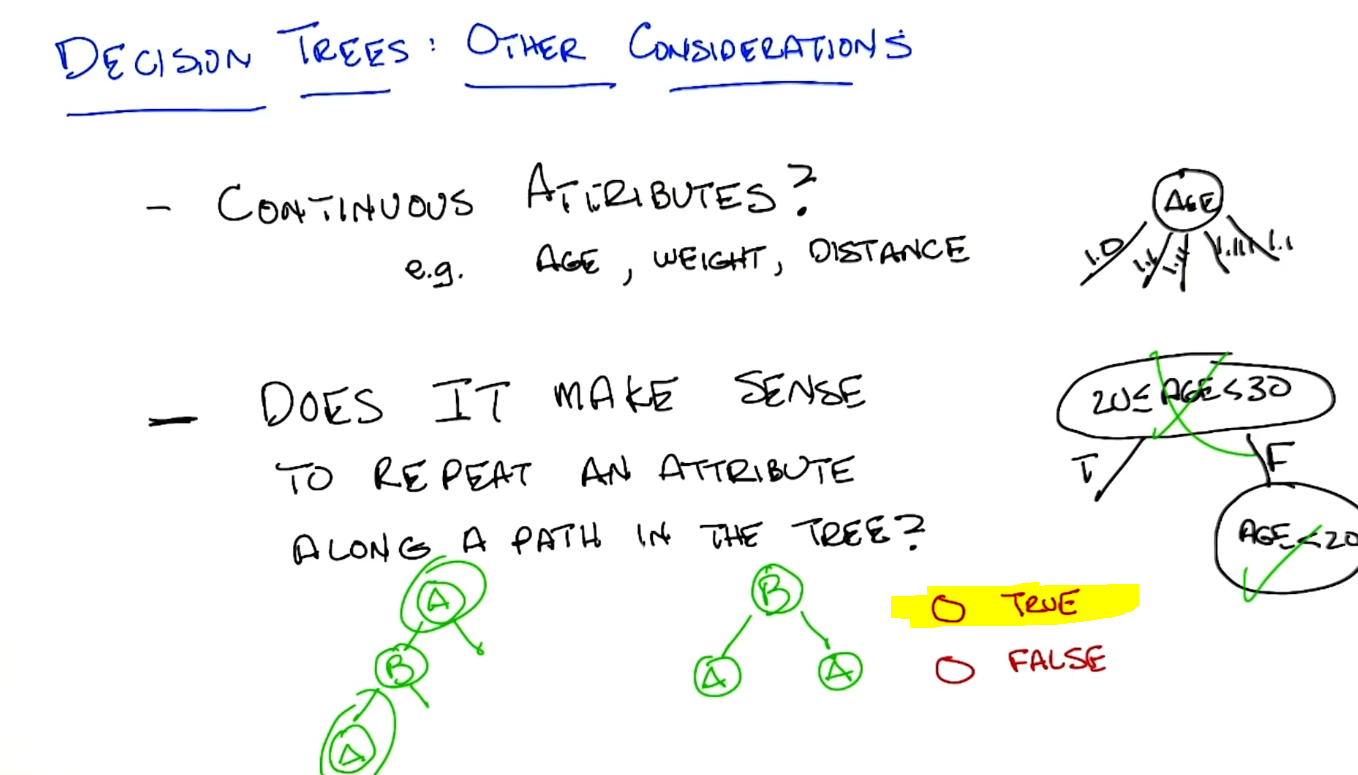 DECISION TREES: OTHER CONSIDERATIONS
- CONTINUOUS ATTRIBUTES?
e.g. AGE, WEIGHT, DISTANCE
AGE
1.0 1.1 1.11 1.111 1.1
- DOES IT MAKE SENSE
TO REPEAT AN ATTRIBUTE
ALONG A PATH IN THE TREE?
20≤AGE<30
T F
AGE<20
A
B
A
B
A A
TRUE
FALSE